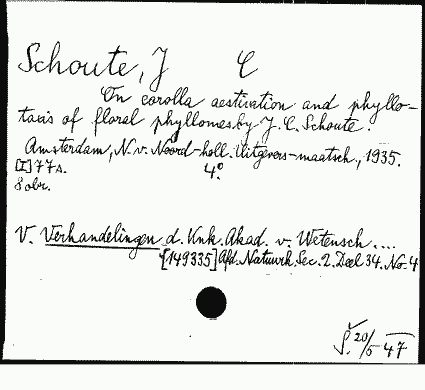 Schoute, J C
On corolla aestivation and phyllo-
taxis of floral phyllomes by J. C. Schoute.
Amsterdam, N. v. Noord-holl. Uitgevers-maatsch., 1935.
[I] 77 s. 4°.
8 obr.
V. Verhandelingen d. Knk. Akad. v. Wetensch. ....
[149335] Afd. Natuurk. Sec. 2. Deel 34. No. 4
Š. 20/5 47